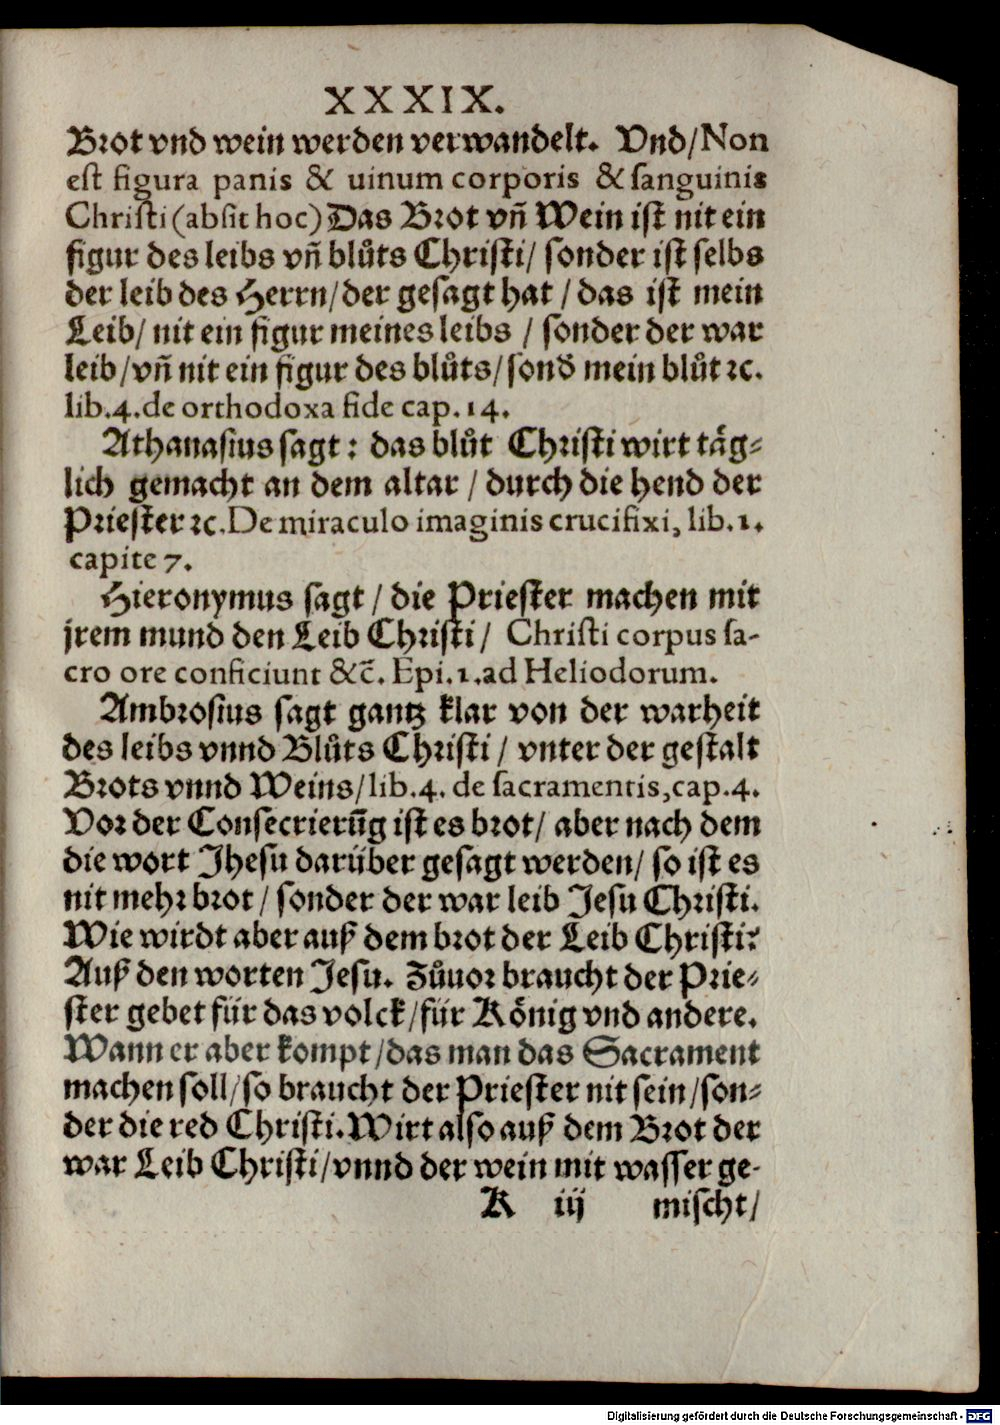 XXXIX.
Brot vnd wein werden verwandelt. Vnd/Non
est figura panis & uinum corporis & sanguinis
Christi (absit hoc) Das Brot vñ Wein ist nit ein
figur des leibs vñ blůts Christi/ sonder ist selbs
der leib des Herrn/der gesagt hat / das ist mein
Leib/ nit ein figur meines leibs / sonder der war
leib/vñ nit ein figur des blůts/sond̄ mein blůt ꝛc.
lib.4.de orthodoxa fide cap.14.
Athanasius sagt: das blůt Christi wirt täg⸗
lich gemacht an dem altar / durch die hend der
Priester ꝛc.De miraculo imaginis crucifixi, lib.1.
capite 7.
Hieronymus sagt / die Priester machen mit
jrem mund den Leib Christi/ Christi corpus sa-
cro ore conficiunt &c̄. Epi.1.ad Heliodorum.
Ambrosius sagt gantz klar von der warheit
des leibs vnnd Blůts Christi / vnter der gestalt
Brots vnnd Weins/lib.4. de sacramentis,cap.4.
Vor der Consecrierūg ist es brot/ aber nach dem
die wort Jhesu darüber gesagt werden/ so ist es
nit mehr brot / sonder der war leib Jesu Christi.
Wie wirdt aber auß dem brot der Leib Christi?
Auß den worten Jesu. Zůuor braucht der Prie⸗
ster gebet für das volck/für König vnd andere.
Wann er aber kompt/das man das Sacrament
machen soll/so braucht der Priester nit sein/son⸗
der die red Christi.Wirt also auß dem Brot der
war Leib Christi/vnnd der wein mit wasser ge-
K iij mischt/
Digitalisierung gefördert durch die Deutsche Forschungsgemeinschaft - DFG